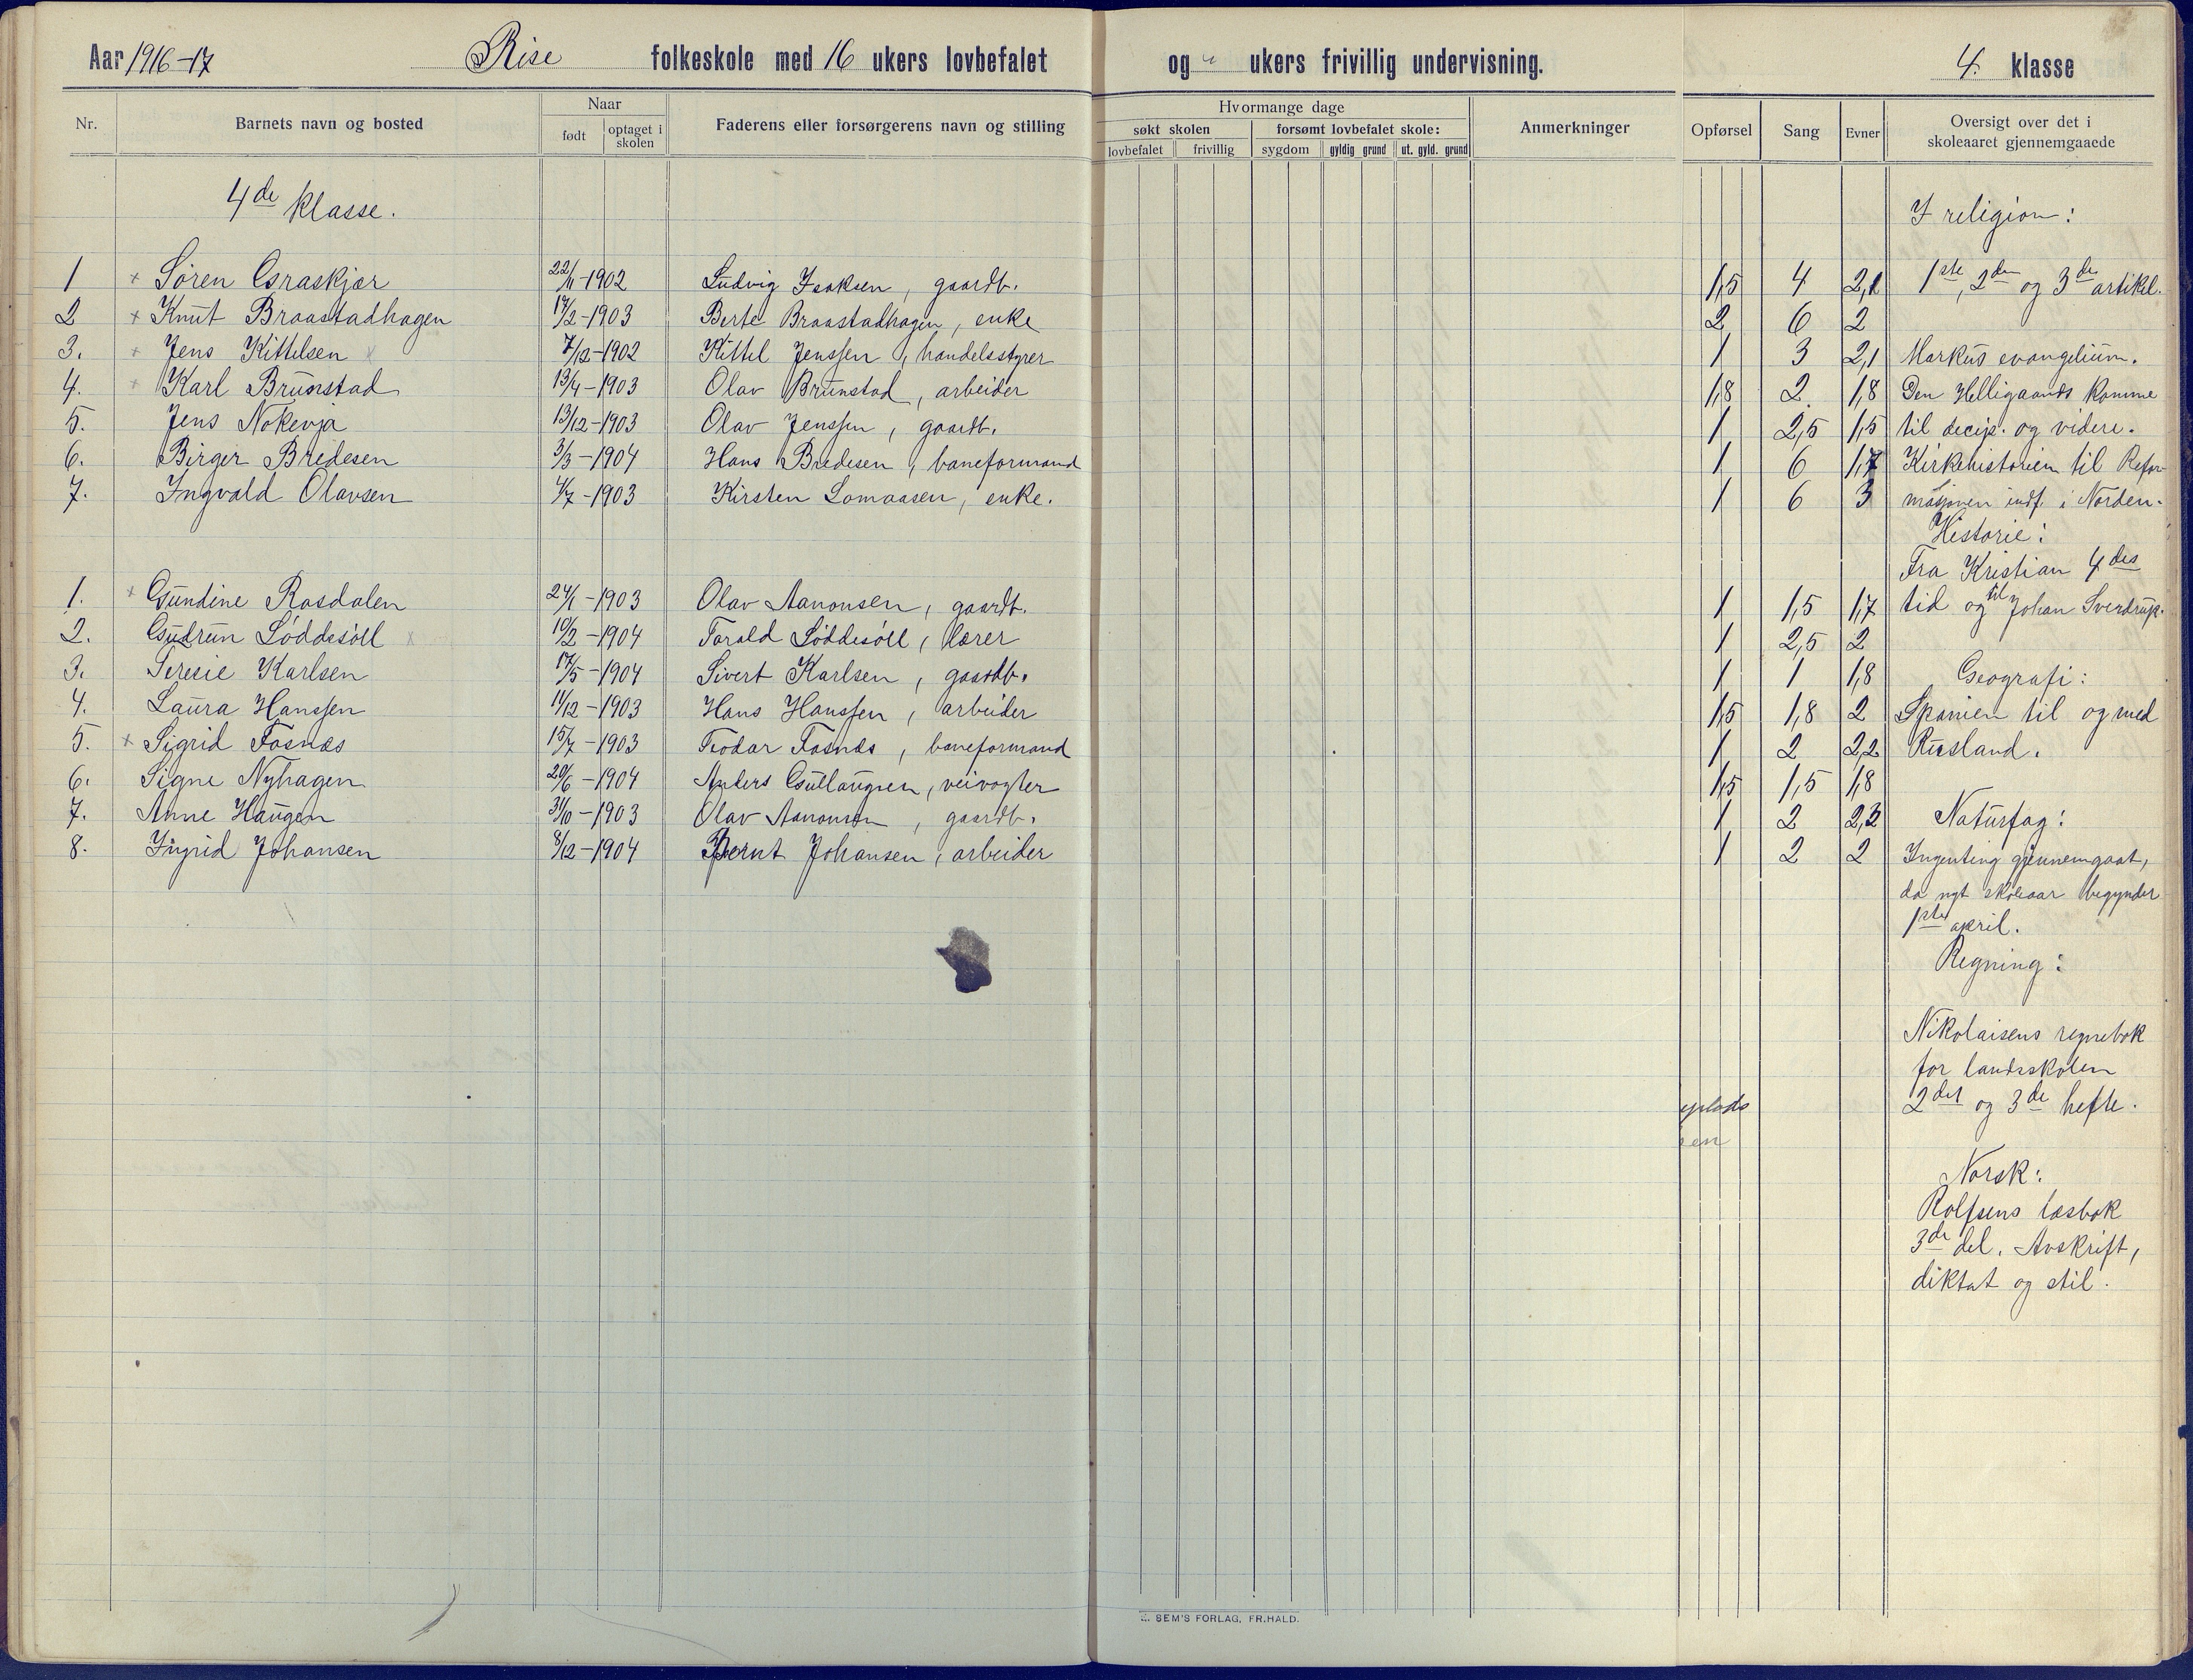 Aar 1916-17 Rise folkeskole med 16 ukers lovbefalet og " ukers frivillig undervisning. 4. klasse
Nr. Barnets navn og bosted Naar født optaget i skolen Faderens eller forsørgerens navn og stilling Hvormange dage søkt skolen lovbefalet frivillig forsømt lovbefalet skole: sygdom gyldig grund ut. gyld. grund Anmerkninger Opførsel Sang Evner Oversigt over det i skoleaaret gjennemgaaede
4de klasse. I religion:
1 + Søren Graskjær 22/11-1902 Ludvig Isaksen, gaardb. 1,5 4 2,1 1ste, 2den og 3de artikel.
2 + Knut Braastadhagen 17/2-1903 Berte Braastadhagen, enke 2 6 2
3. + Jens Kittelsen x 7/12-1902 Kittel Jenssen, handelsstyrer 1 3 2,1 Markus evangelium.
4. + Karl Brunstad 13/4-1903 Olav Brunstad, arbeider 1,8 2. 1,8 Den Helligaands komme
5. Jens Nøkevja 13/12-1903 Olav Jenssen, gaardb. 1 2,5 1,5 til decip. og videre.
6. Birger Bredesen 3/3-1904 Hans Bredesen, baneformand 1 6 1,7 Kirkehistorien til Refor
7. Ingvald Olavsen 4/7-1903 Kirsten Lomaasen, enke. 1 6 3 masjonen indf. i Norden.
Historie:
Fra Kristian 4des
1. + Gundine Rosdalen 24/1-1903 Olav Aanonsen, gaardb. 1 1,5 1,7 tid og til Johan Sverdrup.
2. Gudrun Løddesøll x 10/2-1904 Torald Løddesøll, lærer 1 2,5 2
3. Seresie Karlsen 17/5-1904 Sivert Karlsen, gaardb. 1 1 1,8 Geografi:
4. Laura Hanssen 11/12-1903 Hans Hanssen, arbeider 1,5 1,8 2 Spanien til og med
5. + Sigrid Fosnæs 15/7-1903 Teodor Fosnæs, baneformand 1 2 2,2 Rusland.
6. Signe Nyhagen 20/6-1904 Anders Gullaugsen, veivogter 1,5 1,5 1,8
7. Anne Haugen 31/10-1903 Olav Aanonsen, gaardb. 1 2 2,2 Naturfag:
8. Ingrid Johansen 8/12-1904 Bernt Johansen, arbeider 1 2 2 Ingenting gjennemgaat,
da nyt skoleaar begynder
1ste april.
Regning:
Nikolaisens regnebok
for landsskolen
2det og 3de hefte.
Norsk:
Rolfsens læsbok
3de del. Avskrift,
diktat og stil.
SEM'S FORLAG, FR.HALD.